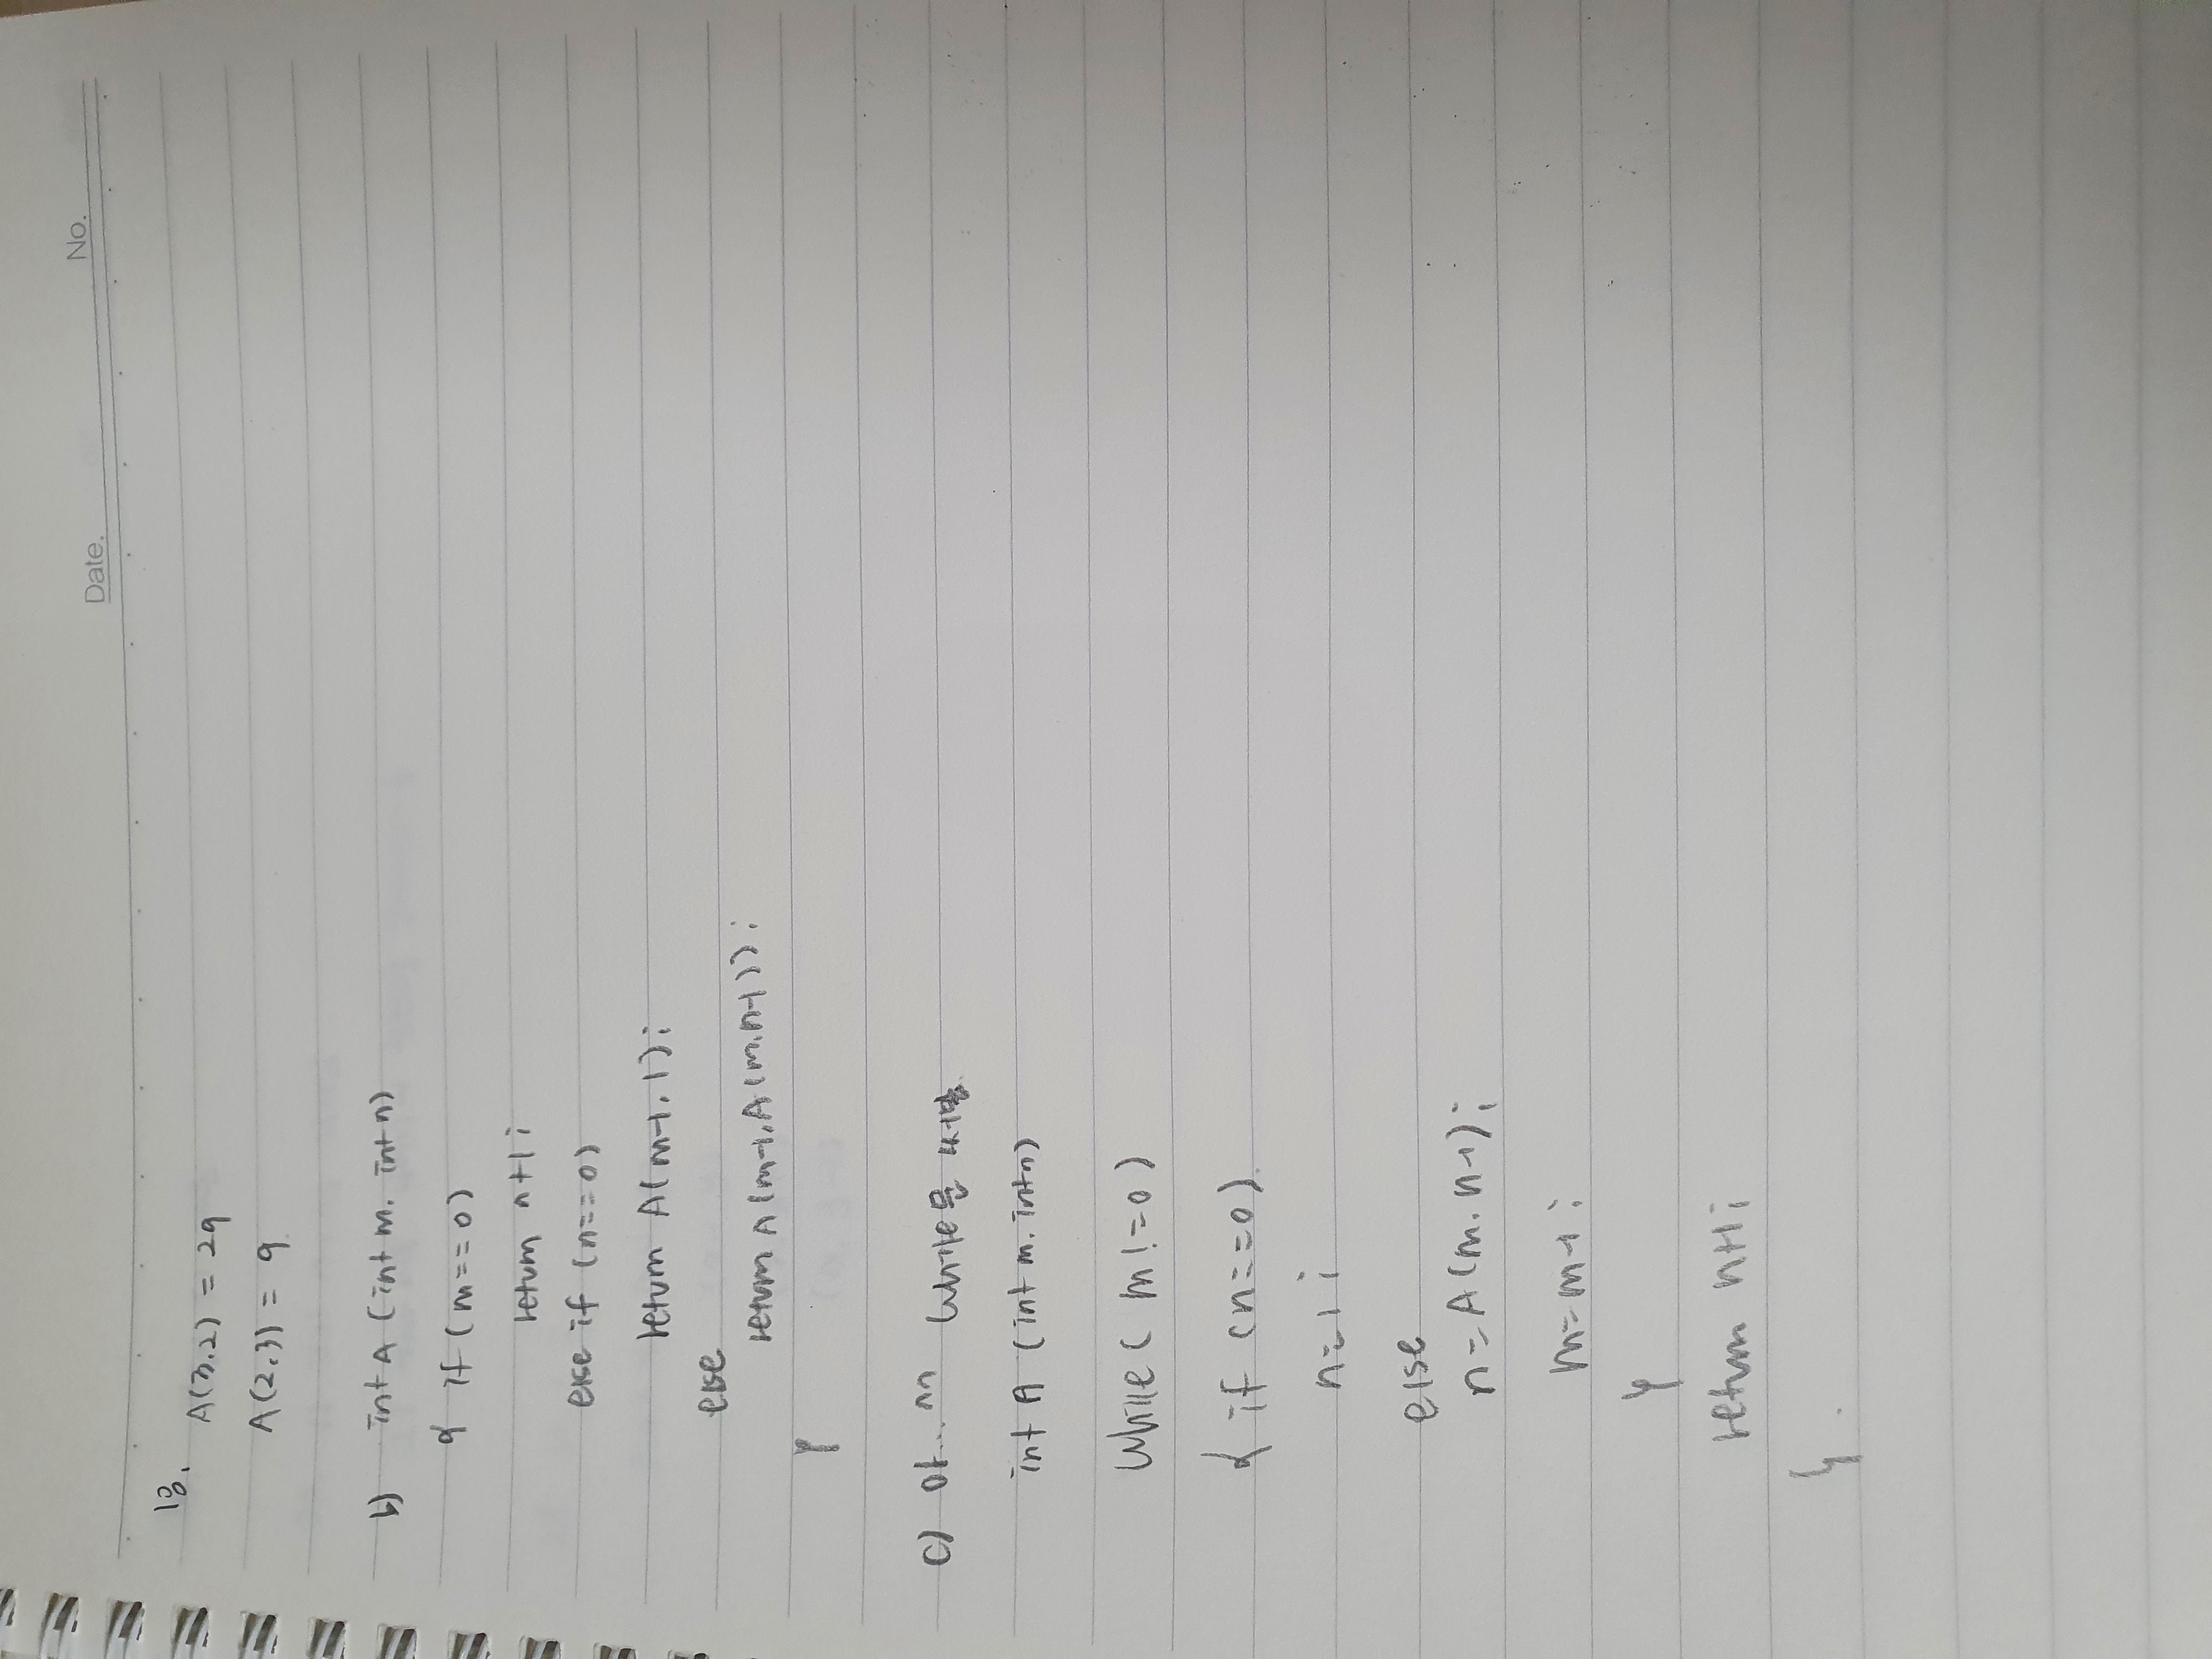 Date.
No.
18.
A(3,2) = 29
A(2,3) = 9
b) int A (int m, int n)
{ if (m==0)
return n+1;
else if (n==0)
return A(m-1, 1);
else
return A(m-1, A(m,n-1));
}
c) 아.. ^^ while문
int A (int m, int n)
while( m!=0)
{ if (n==0)
n=1;
else
n=A(m, n-1);
m=m-1;
}
return n+1;
}